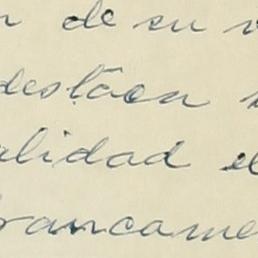 n de su v
destaen
alidad e
francame